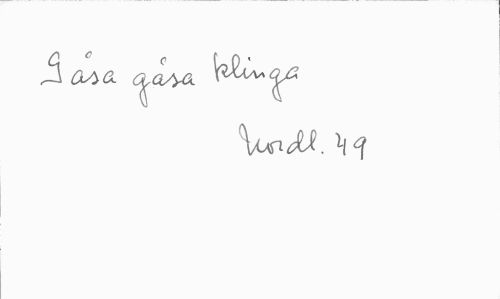 Gåsa gåsa klinga
Nordl. 49